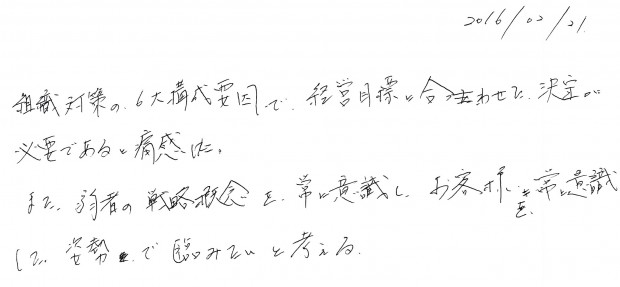 2016/02/21.
組織対策の、6大構成要因で、経営目標に合わせた、決定が
必要であると痛感した。
また、弱者の戦略概念を、常に意識し、お客様を、常に意識
した姿勢で臨みたいと考える。